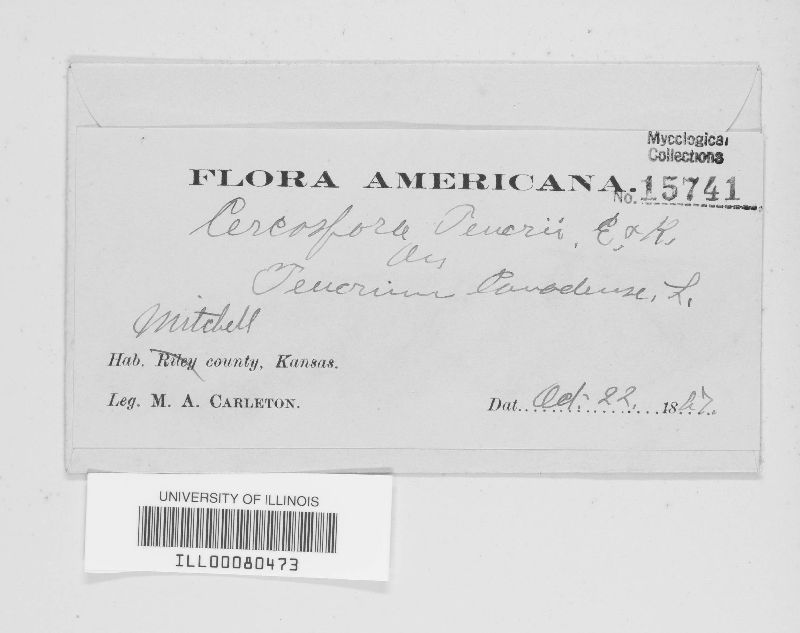 Mycological
Collections
No. 15741
FLORA AMERICANA.
Cercospora Teucrii, E. & K.
On
Teucrium Canadense, L.
Mitchell
Hab. Riley county, Kansas.
Leg. M. A. CARLETON.
Dat. Oct. 22. 1887.
UNIVERSITY OF ILLINOIS
ILL00080473